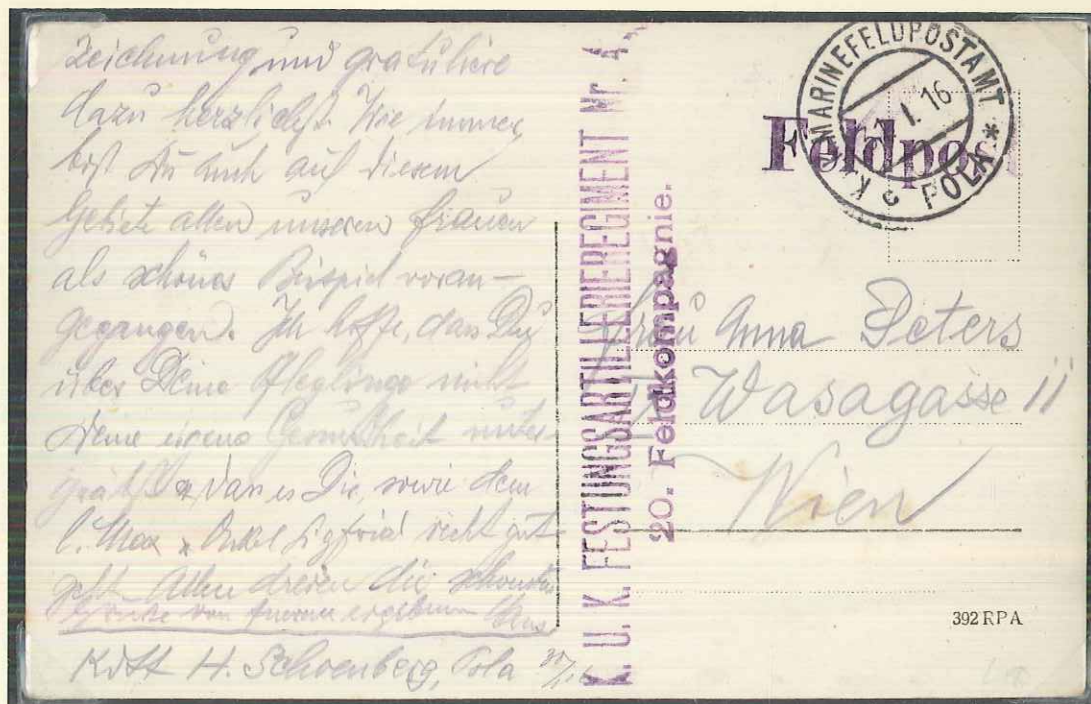 Zeichnung und gratuliere
dazu herzlichst. Wie immer
bist Du auch auf diesem
Gebiete allen unseren Frauen
als schönes Beispiel voran-
gegangen. Ich hoffe, dass Du
über Deine Pfleglinge nicht
Deine eigene Gesundheit unter-
gräbst & dass es Dir, sowie dem
l. Max & Onkel Sigfried recht gut
geht. Allen dreien die schönsten
Grüsse von Eurem ergebenen Hans
H. Schoenberg, Pola
K. U. K. FESTUNGSARTILLERIEREGIMENT Nr. 4,
20. Feldkompagnie.
Feldpost
K. u. K. MARINEFELDPOSTAMT
I. 16
POLA
Frau Anna Peters
IX Wasagasse 11
Wien
392 RPA